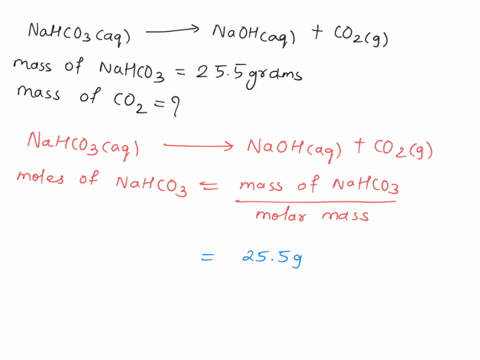 NaHCO3(aq) → NaOH(aq) + CO2(g)
mass of NaHCO3 = 25.5grams
mass of CO2 = ?
NaHCO3(aq) → NaOH(aq) + CO2(g)
moles of NaHCO3 = mass of NaHCO3
molar mass
= 25.5g